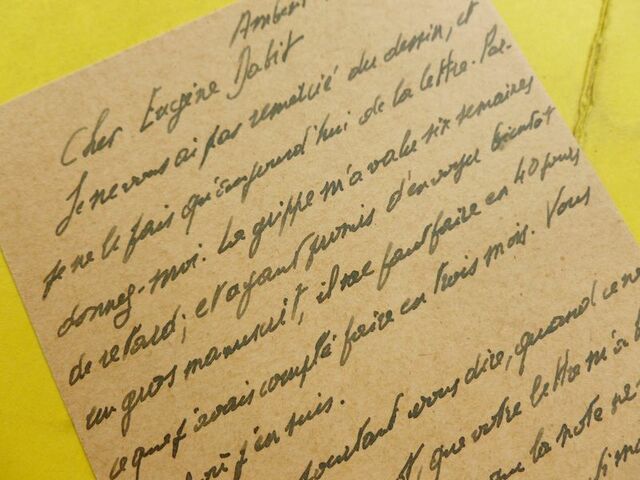 Ambert
Cher Eugène Dabit
Je ne vous ai pas remercié du dessin, et
je ne le fais qu'aujourd'hui de la lettre. Par-
donnez-moi. La grippe m'a valu six semaines
de retard; et ayant promis d'envoyer bientôt
un gros manuscrit, il me faut faire en 40 jours
ce que j'avais compté faire en trois mois. Vous
où j'en suis.
pourtant vous dire, quand ce ne
que votre lettre m'a
la note ne